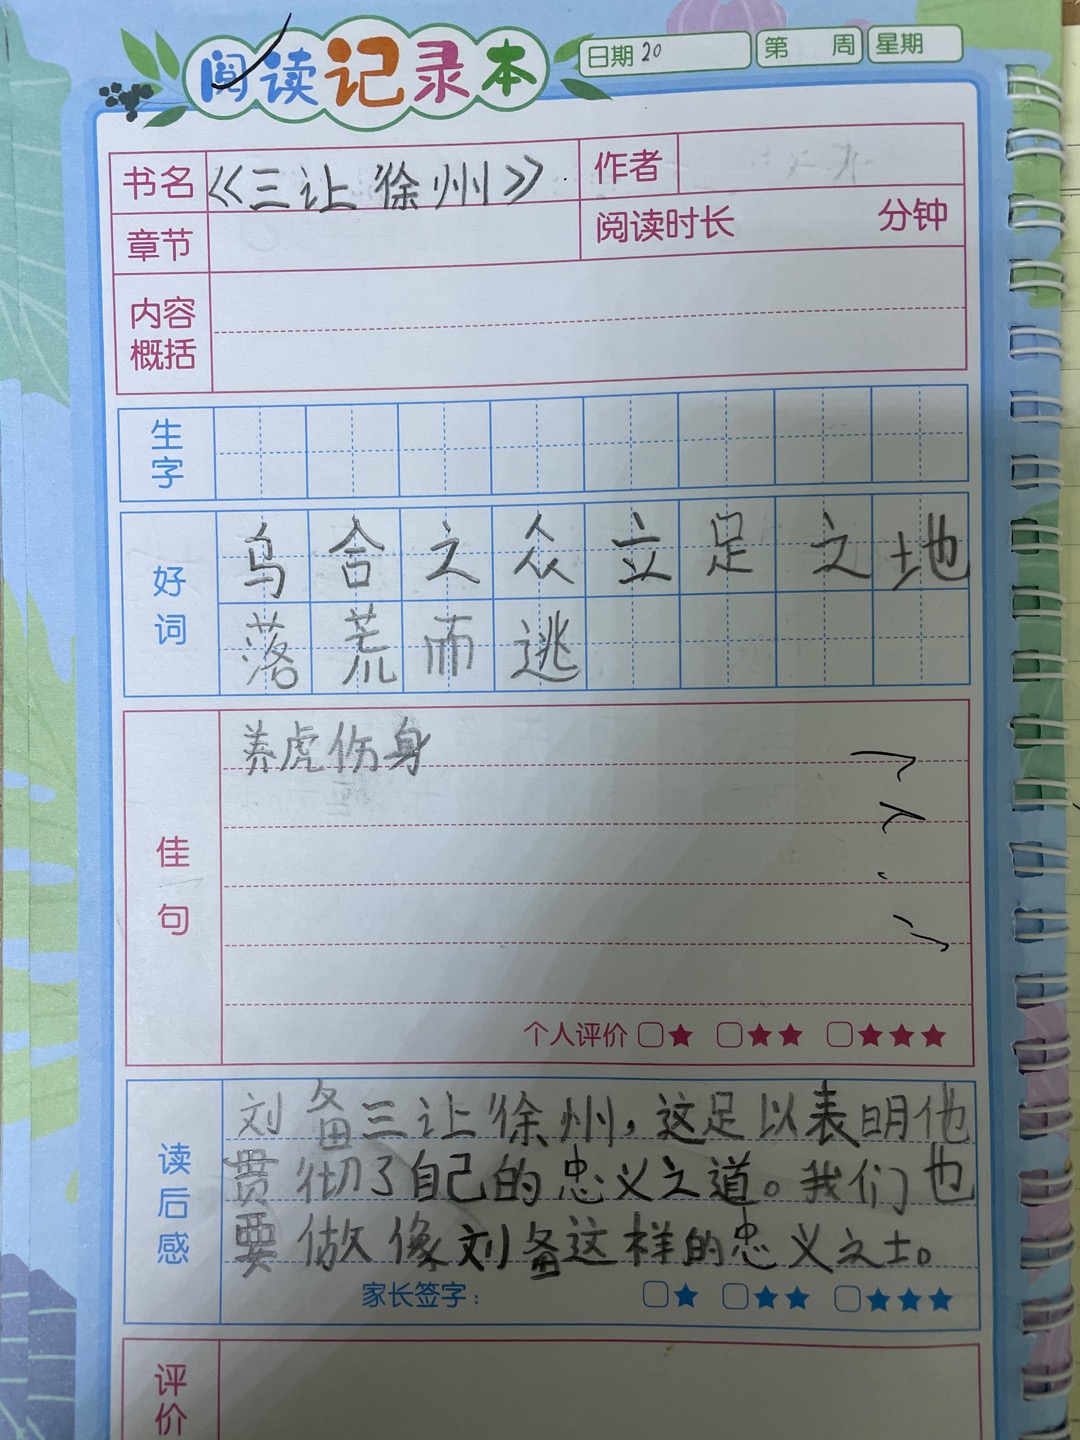 阅读记录本
日期 20 第 周 星期
书名 《三让徐州》 作者
章节 阅读时长 分钟
内容
概括
生字
好词 乌合之众立足之地
落荒而逃
佳句 养虎伤身
个人评价 □★ □★★ □★★★
读后感 刘备三让徐州，这足以表明他
贯彻了自己的忠义之道。我们也
要做像刘备这样的忠义之士。
家长签字： □★ □★★ □★★★
评价